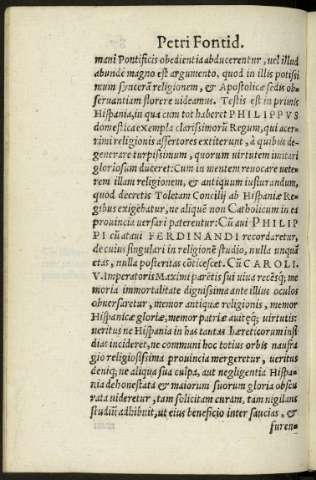 Petri Fontid.
mani Pontificis obedientia abducerentur, uel illud
abundè magno est argumento, quod in illis potissi
mum syncerã religionem, & Apostolicæ sedis ob-
seruantiam florere uideamus. Testis est in primis
Hispania, in qua cum tot haberet PHILIPPVS
domestica exempla clarissimorũ Regum, qui acer-
rimi religionis assertores extiterunt, à quibus de-
generare turpissimum, quorum uirtutem imitari
gloriosum duceret: Cum in mentem reuocare uete-
rem illam religionem, & antiquum iusiurandum,
quod decretis Toletani Concilij ab Hispaniæ Re-
gibus exigebatur, ne aliquẽ non Catholicum in ea
prouincia uersari paterentur: Cũ aui PHILIP
PI cũ ataui FERDINANDI recordaretur,
de cuius singulari in religionẽ studio, nulla unquã
etas, nulla posteritas cõticescet. Cũ CAROLI.
V. Imperatoris Maximi parẽtis sui uiua recẽsq; me-
moria immortalitate dignissima ante illius oculos
obuersaretur, memor antiquæ religionis, memor
Hispanicæ gloriæ, memor patriæ autẽq; uirtutis:
ueritus ne Hispania in has tantas hæreticorum insi
dias incideret, ne communi hoc totius orbis naufra
gio religiosissima prouincia mergeretur, ueritus
deniq; ne aliqua sua culpa, aut negligentia Hispa-
nia dehonestata & maiorum suorum gloria obscu
rata uideretur, tam solicitam curam, tam uigilans
studiũ adhibuit, ut eius beneficio inter saucias, &
furen-